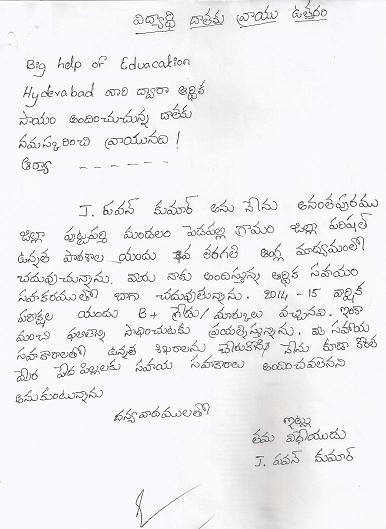 విద్యార్థి దాతకు వ్రాయు ఉత్తరం
Big help of Eduacation
Hyderabad వారి ద్వారా ఆర్థిక
సాయం అందించుచున్న దాతకు
నమస్కరించి వ్రాయునది !
ఆర్యా - - - - - -
J. పవన్ కుమార్ అను నేను అనంతపురము
జిల్లా పుట్టపర్తి మండలం పెడపల్లి గ్రామం జిల్లా పరిషత్
ఉన్నత పాఠశాల యందు తరగతి ఆంగ్ల మాధ్యమంలో
చదువుచున్నాను. మీరు నాకు అందిస్తున్న ఆర్థిక సహాయం
సహకారముతో బాగా చదువుతున్నాను. 2014 - 15 వార్షిక
పరీక్షల యందు B+ గ్రేడు/ మార్కులు వచ్చినవి. ఇంకా
మంచి ఫలితాన్ని సాధించుటకు ప్రయత్నిస్తున్నాను. మీ సహాయ
సహకారాలతో ఉన్నత శిఖరాలను నేను కూడా కొంత
మేర పేద పిల్లలకు సహాయ సహకారాలు అందించవలెనని
అనుకుంటున్నాను
ధన్యవాదములతో
ఇట్లు
తమ విధేయుడు
J. పవన్ కుమార్